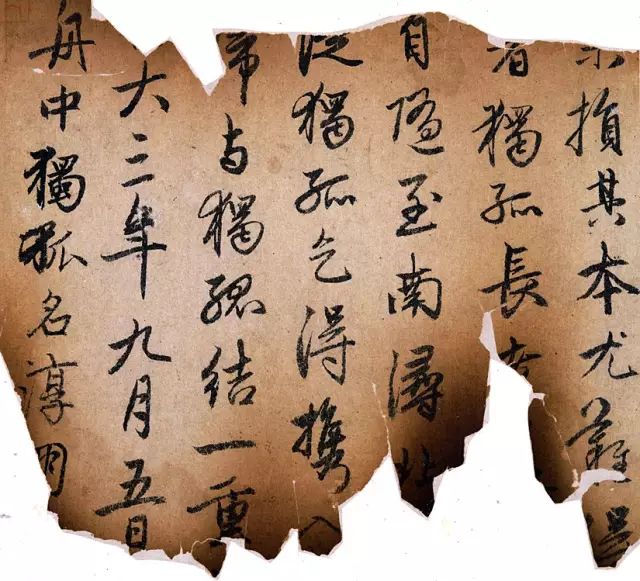 未損其本尤難得
者獨孤長
自隨至南潯北
從獨孤乞得攜入
与獨孤結一重
大三年九月五日
舟中獨孤名淳朋